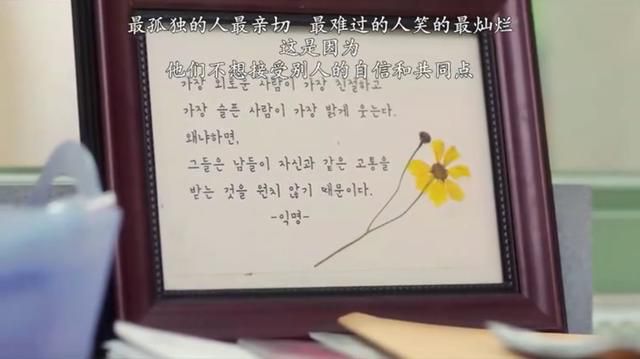 最孤独的人最亲切 最难过的人笑的最灿烂
这是因为
他们不想接受别人的自信和共同点
가장 외로운 사람이 가장 친절하고
가장 슬픈 사람이 가장 밝게 웃는다.
왜냐하면,
그들은 남들이 자신과 같은 고통을
받는 것을 원치 않기 때문이다.
-익명-